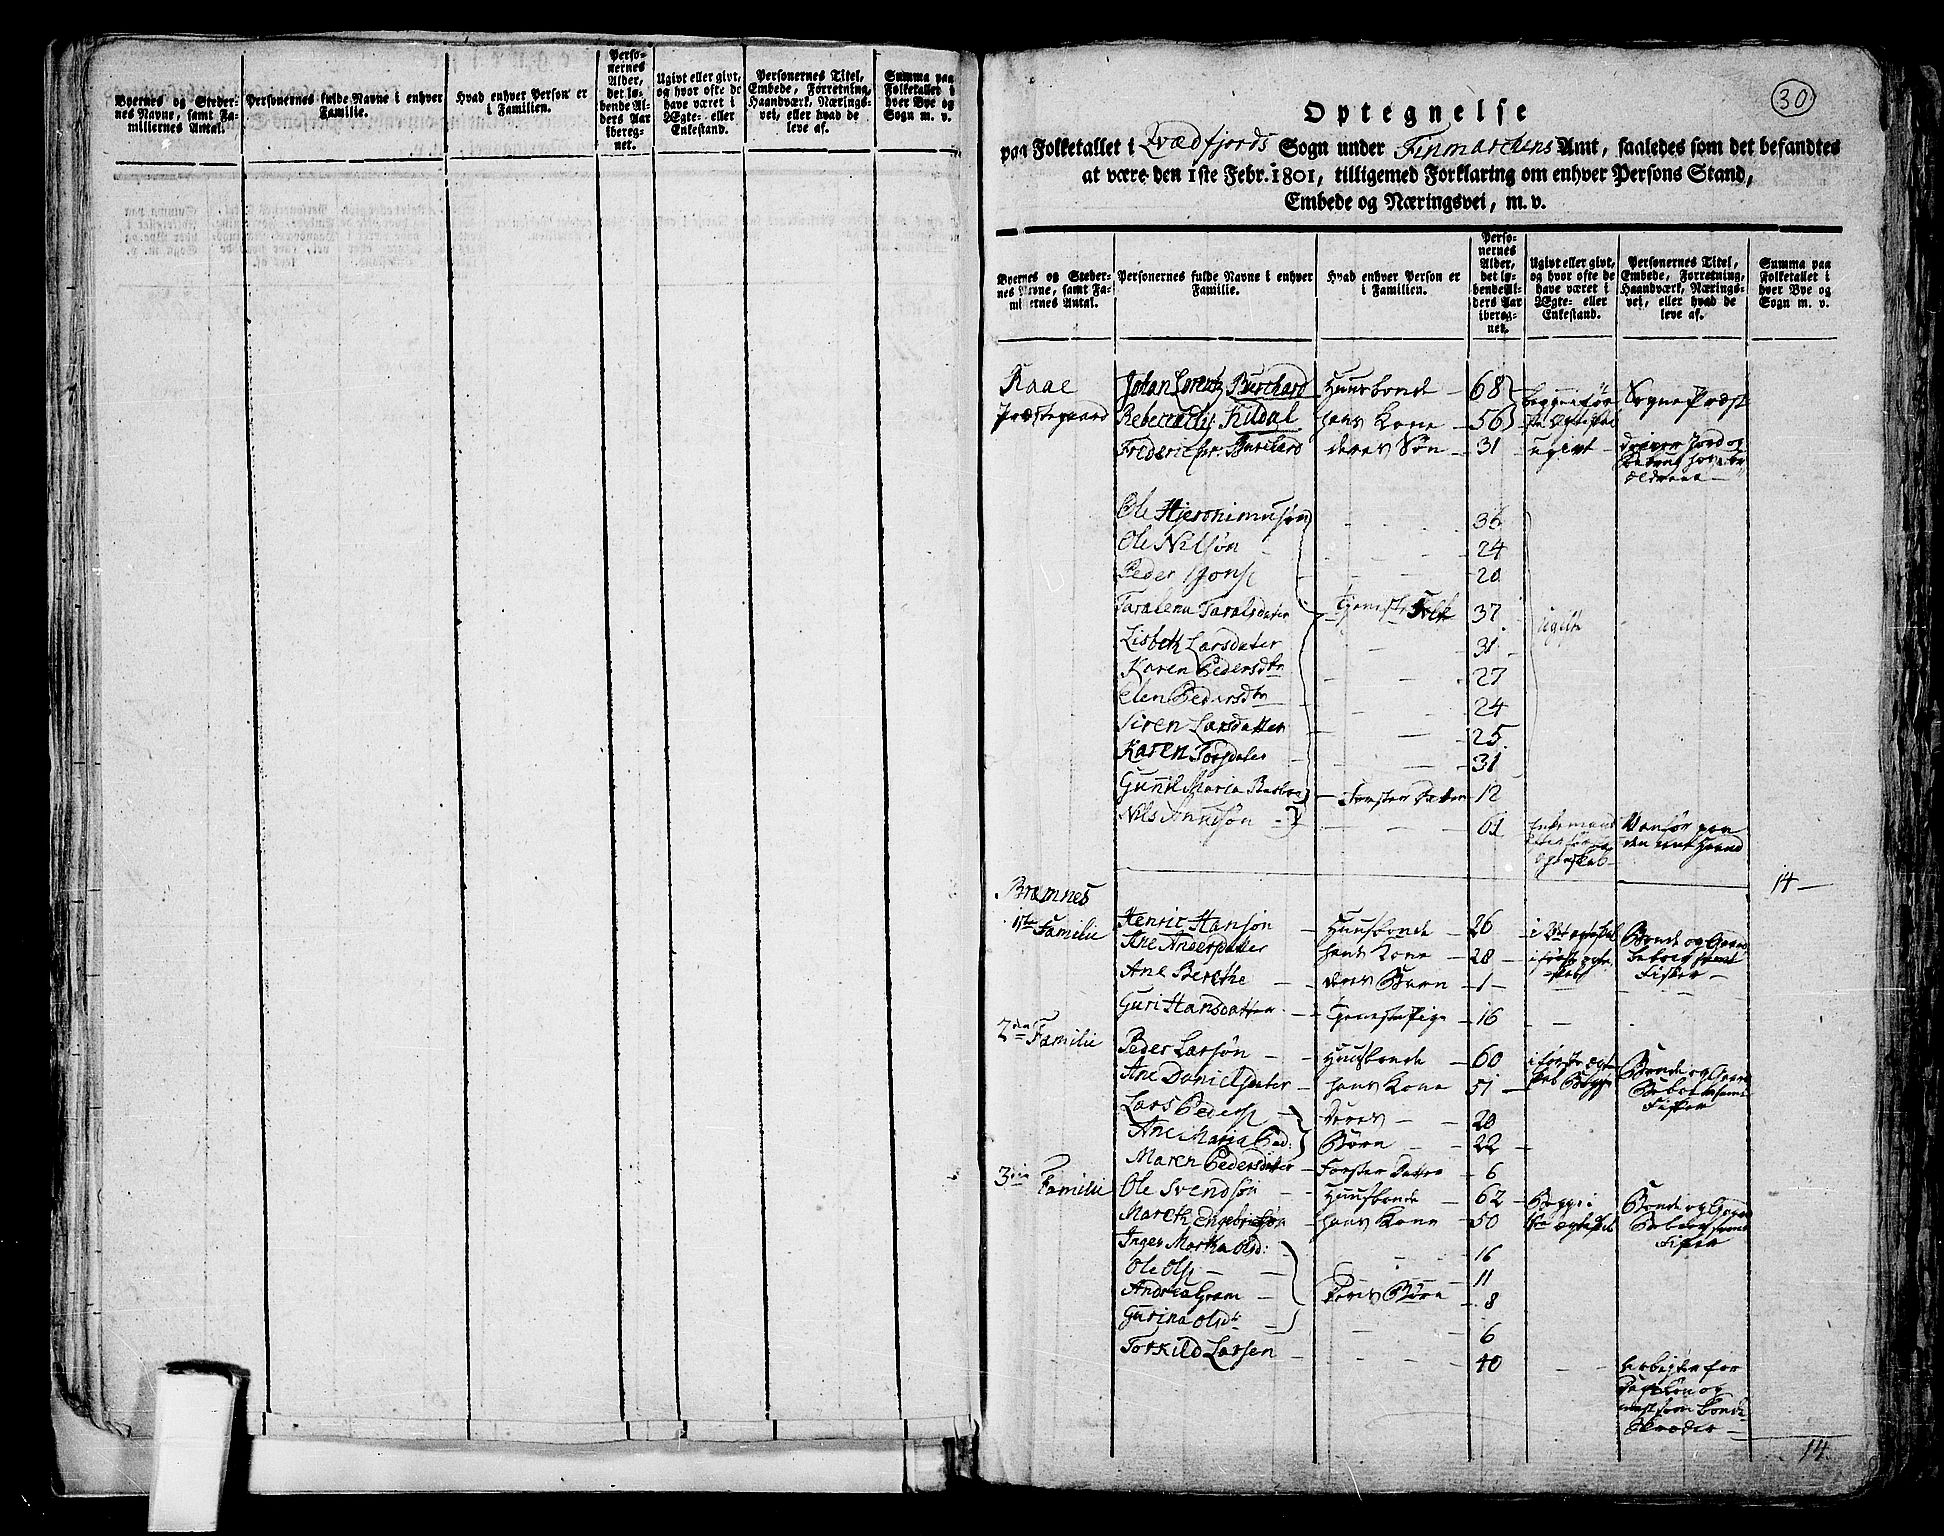 Byernes og Steder-
nes Navne, samt Fa-
miliernes Antal.
Personernes fulde Navne i enhver
Familie.
Hvad enhver Person er
i Familien.
Perso-
nernes
Alder,
det lø-
bende Al-
ders Aar
ibereg-
net.
Ugivt eller givt,
og hvor ofte de
have været i
Ægte- eller
Enkestand.
Personernes Titel,
Embede, Forretning,
Haandværk, Nærings-
vei, eller hvad de
leve af.
Summa paa
Folketallet i
hver Bye og
Sogn m. v.
30
Optegnelse
paa Folketallet i Qvædfjords Sogn under Finmarckens Amt, saaledes som det befandtes
at være den 1ste Febr. 1801, tilligemed Forklaring om enhver Persons Stand,
Embede og Næringsvei, m. v.
Byernes og Steder-
nes Navne, samt Fa-
miliernes Antal.
Personernes fulde Navne i enhver
Familie.
Hvad enhver Person er
i Familien.
Perso-
nernes
Alder,
det lø-
bende Al-
ders Aar
ibereg-
net.
Ugivt eller givt,
og hvor ofte de
have været i
Ægte- eller
Enkestand.
Personernes Titel,
Embede, Forretning,
Haandværk, Nærings-
vei, eller hvad de
leve af.
Summa paa
Folketallet i
hver Bye og
Sogn m. v.
Raae Johan Lorentz Burchard Huusbonde 68 Sogne Præst
Præstegaard Rebecca Kildal hans Kone 56
Frederic Burchard deres Søn 31 ugivt
Ole Hjeronimusøn 36
Ole Nilsøn 24
Peder 20
Taralena Taralsdater Tjeneste Folk 37 ugifte
Lisbeth Larsdater 31
Karen Pedersdtr 27
Elen Pedersdtr 24
Siren Larsdatter 25
Karen 31
Gunil Maria Foster Dater 12
Nils 61 Enkemand Vanfør paa
14
Bramnes
1ste Familie Henric Hansøn Huusbonde 26 Bonde og Gaard
Ane Andersdater hans Kone 28 Beboer samt
Ane Berethe deres Barn 1 Fisker
Guri Hansdatter Tjenestepige 16
2den Familie Peder Larsøn Huusbonde 60 Bonde og Gaard
Ane Danielsdater hans Kone 51 Beboer samt
Lars Peders deres 20 Fisker
Ane Maria Ped: Børn 22
Maren Pedersdater Foster Dater 6
3die Familie Ole Svendsøn Huusbonde 62 Begge i Bonde og Gaard
Mareth hans Kone 50 Beboer samt
Inger Martha Olsd: 16 Fisker
Ole Ols 11
Andrea Gram Deres Børn 8
Gurina Olsdtr 6
Torkild Larsen 40 arbejder for
14